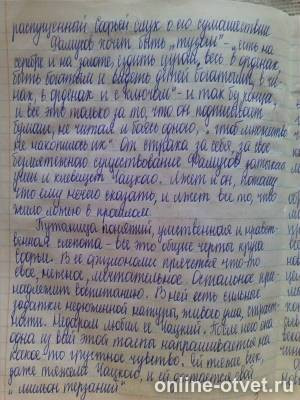 распущенный Софьей слух о его сумасшествии
Фамусов хочет быть „тузом" – „есть на
серебре и на золоте, ездить цугом, весь в орденах
быть богатым и видеть детей богатыми, в чи-
нах, в орденах и с ключом" – и так без конца,
и все это только за то, что он подписывает
бумаги, не читая и боясь одного, „чтоб множество
не накопилось их". От испуга за себя, за свое
безмятежное существование Фамусов затыкает
уши и клевещет на Чацкого. Лжет и он, потому
что ему нечего сказать, и лжет все то, что
жило ложью в прошлом.
Путаница понятий, умственная и нравст-
венная слепота – все это общие черты круга
Софьи. В ее физиономии прячется что-то
свое, нежное, мечтательное. Остальное при-
надлежит воспитанию. В ней есть сильные
задатки недюжинной натуры, живого ума, страст-
ности. Недаром любил ее Чацкий. После нее она
одна из всей этой толпы напрашивается на
какое-то грустное чувство. Ей тяжело всех,
даже тяжелее Чацкого, и ей достается свой
„мильон терзаний"
online-otvet.ru